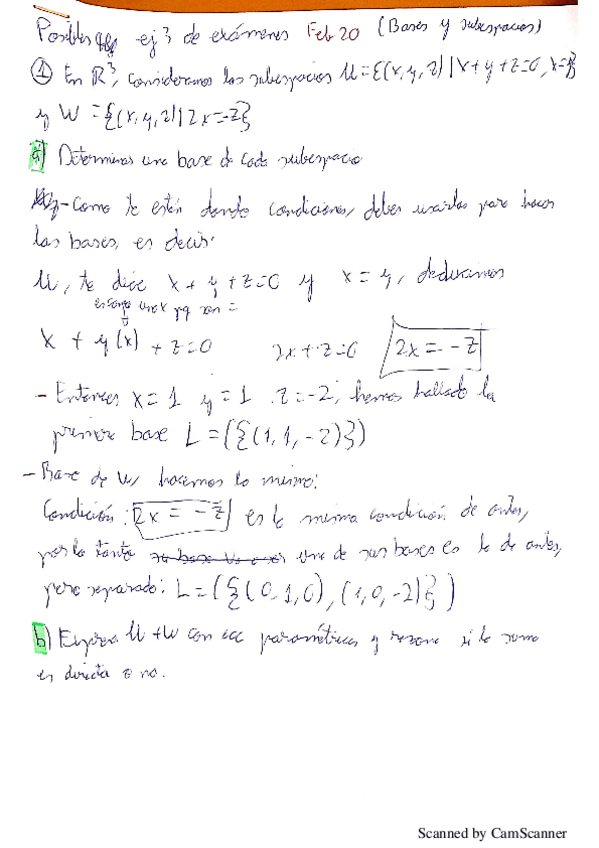 Posibles ej 3 de exámenes Feb 20 (Bases y subespacios)
① En R³, consideramos los subespacios U={(x,y,z)|x+y+z=0, x=y}
y W={(x,y,z)|2x=-z}
a) Determinar una base de cada subespacio
- Como te están dando condiciones, debes usarlas para hacer
las bases, es decir:
U, te dice x+y+z=0 y x=y, deducimos
es como una x pq son =
x + y(x) + z=0 2x+z=0 2x=-z
- Entonces x=1 y=1 z=-2, hemos hallado la
primera base L=({(1,1,-2)})
- Base de W hacemos lo mismo:
Condición: 2x=-z es la misma condición de antes,
por lo tanto una de sus bases es la de antes,
pero separado: L=({(0,1,0),(1,0,-2)})
b) Expresa U+W con ecc paramétricas y razona si la suma
es directa o no.
Scanned by CamScanner